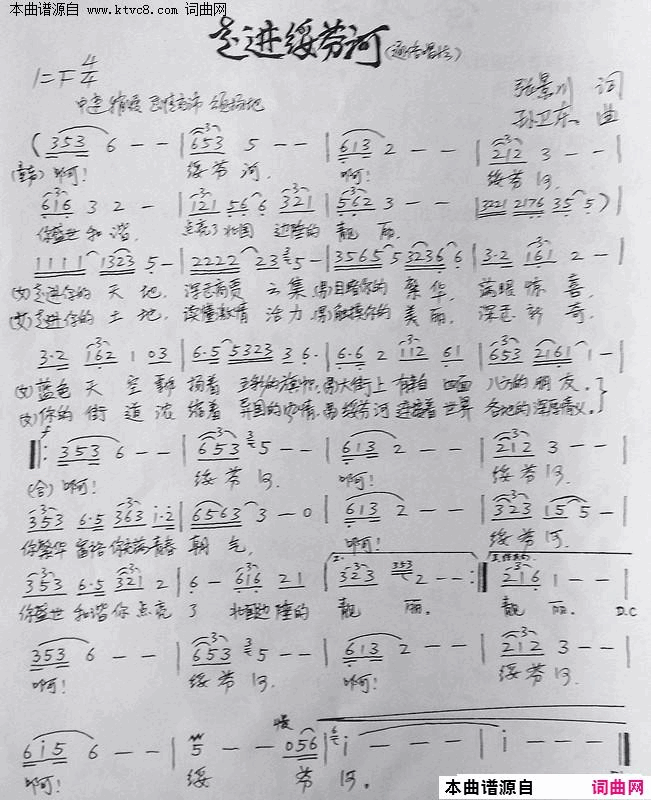 本曲谱源自
www.ktvc8.com 词曲网
走进绥芬河(通俗唱法)
1=F 4/4
中速
张景川 词
孙卫东 曲
(353 6 - - | 653 5 - - | 613 2 - - | 212 3 - - |
啊! 绥芬河. 啊! 绥芬河.
616 3 2 - | 121 56 6 321 | 562 3 - - | 3221 2176 35 5 ) |
你盛世和谐. 点亮了北国 边陲的 靓丽.
1111 1323 5 - | 2222 23 5 - | 3565 5 3236 6 | 3·2 161 2 - |
(女)走进你的 天地, 云集, 目睹你的 繁华, 满眼惊喜,
(女)走进你的 土地, 读懂激情 活力, (男)触摸你的 美丽, 深感新奇,
3·2 162 1 03 | 6·5 5323 3 6· | 6·6 2 112 61 | 653 2161 1 - |
(女)蓝色天空飘扬着 五彩的旗帜, (男)大街上 有来自 四面 八方的朋友.
(女)你的街道浓缩着 异国的风情, (男)绥芬河 连接着世界 各地的深厚情义.
353 6 - - | 653 5 - - | 613 2 - - | 212 3 - - |
(合)啊! 绥芬河. 啊! 绥芬河.
353 6·5 363 i·2 | 6563 3 - 0 | 613 2 - - | 323 15 5 - |
你繁华富裕你充满青春 朝气, 啊! 绥芬河.
353 6·5 321 2 | 6 - 616 21 | 323 353 2 - - :| 216 1 - - |
你盛世和谐你点亮 了 北国边陲的 靓丽. 靓丽. D.C
353 6 - - | 653 5 - - | 613 2 - - | 212 3 - - |
啊! 绥芬河. 啊! 绥芬河.
慢
6i5 6 - - | 5 - - 056 | i - - - | i - - - ‖
啊! 绥芬河.
本曲谱源自 词曲网